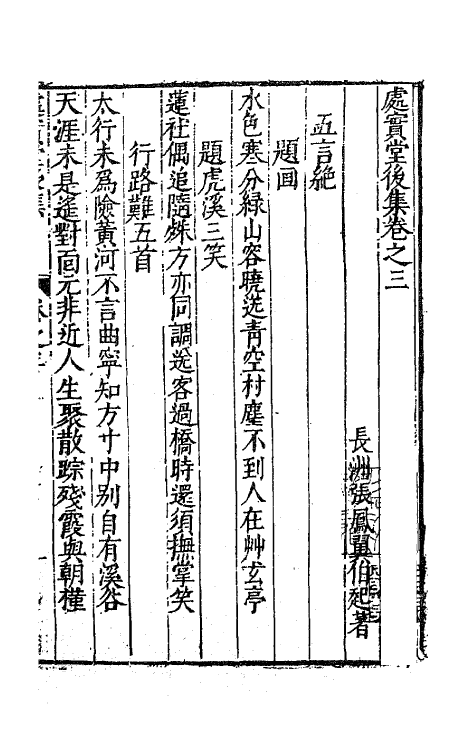 處實堂後集卷之三
長洲張鳳翼伯起著
五言絕
題画
水色寒分綠山容曉送青空村塵不到人在艸玄亭
題虎溪三笑
蓮社偶追隨殊方亦同調送客過橋時還須撫掌笑
行路難五首
太行未爲險黃河不言曲寧知方寸中別自有溪谷
天涯未是遙對面元非近人生聚散踪殘霞與朝槿